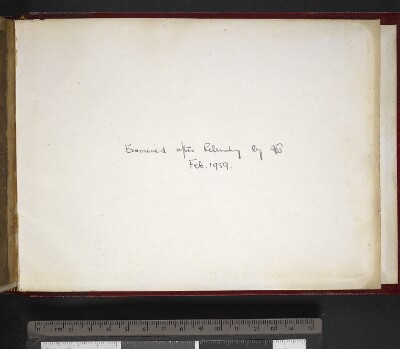 Examined after Rebinding by
Feb. 1939.